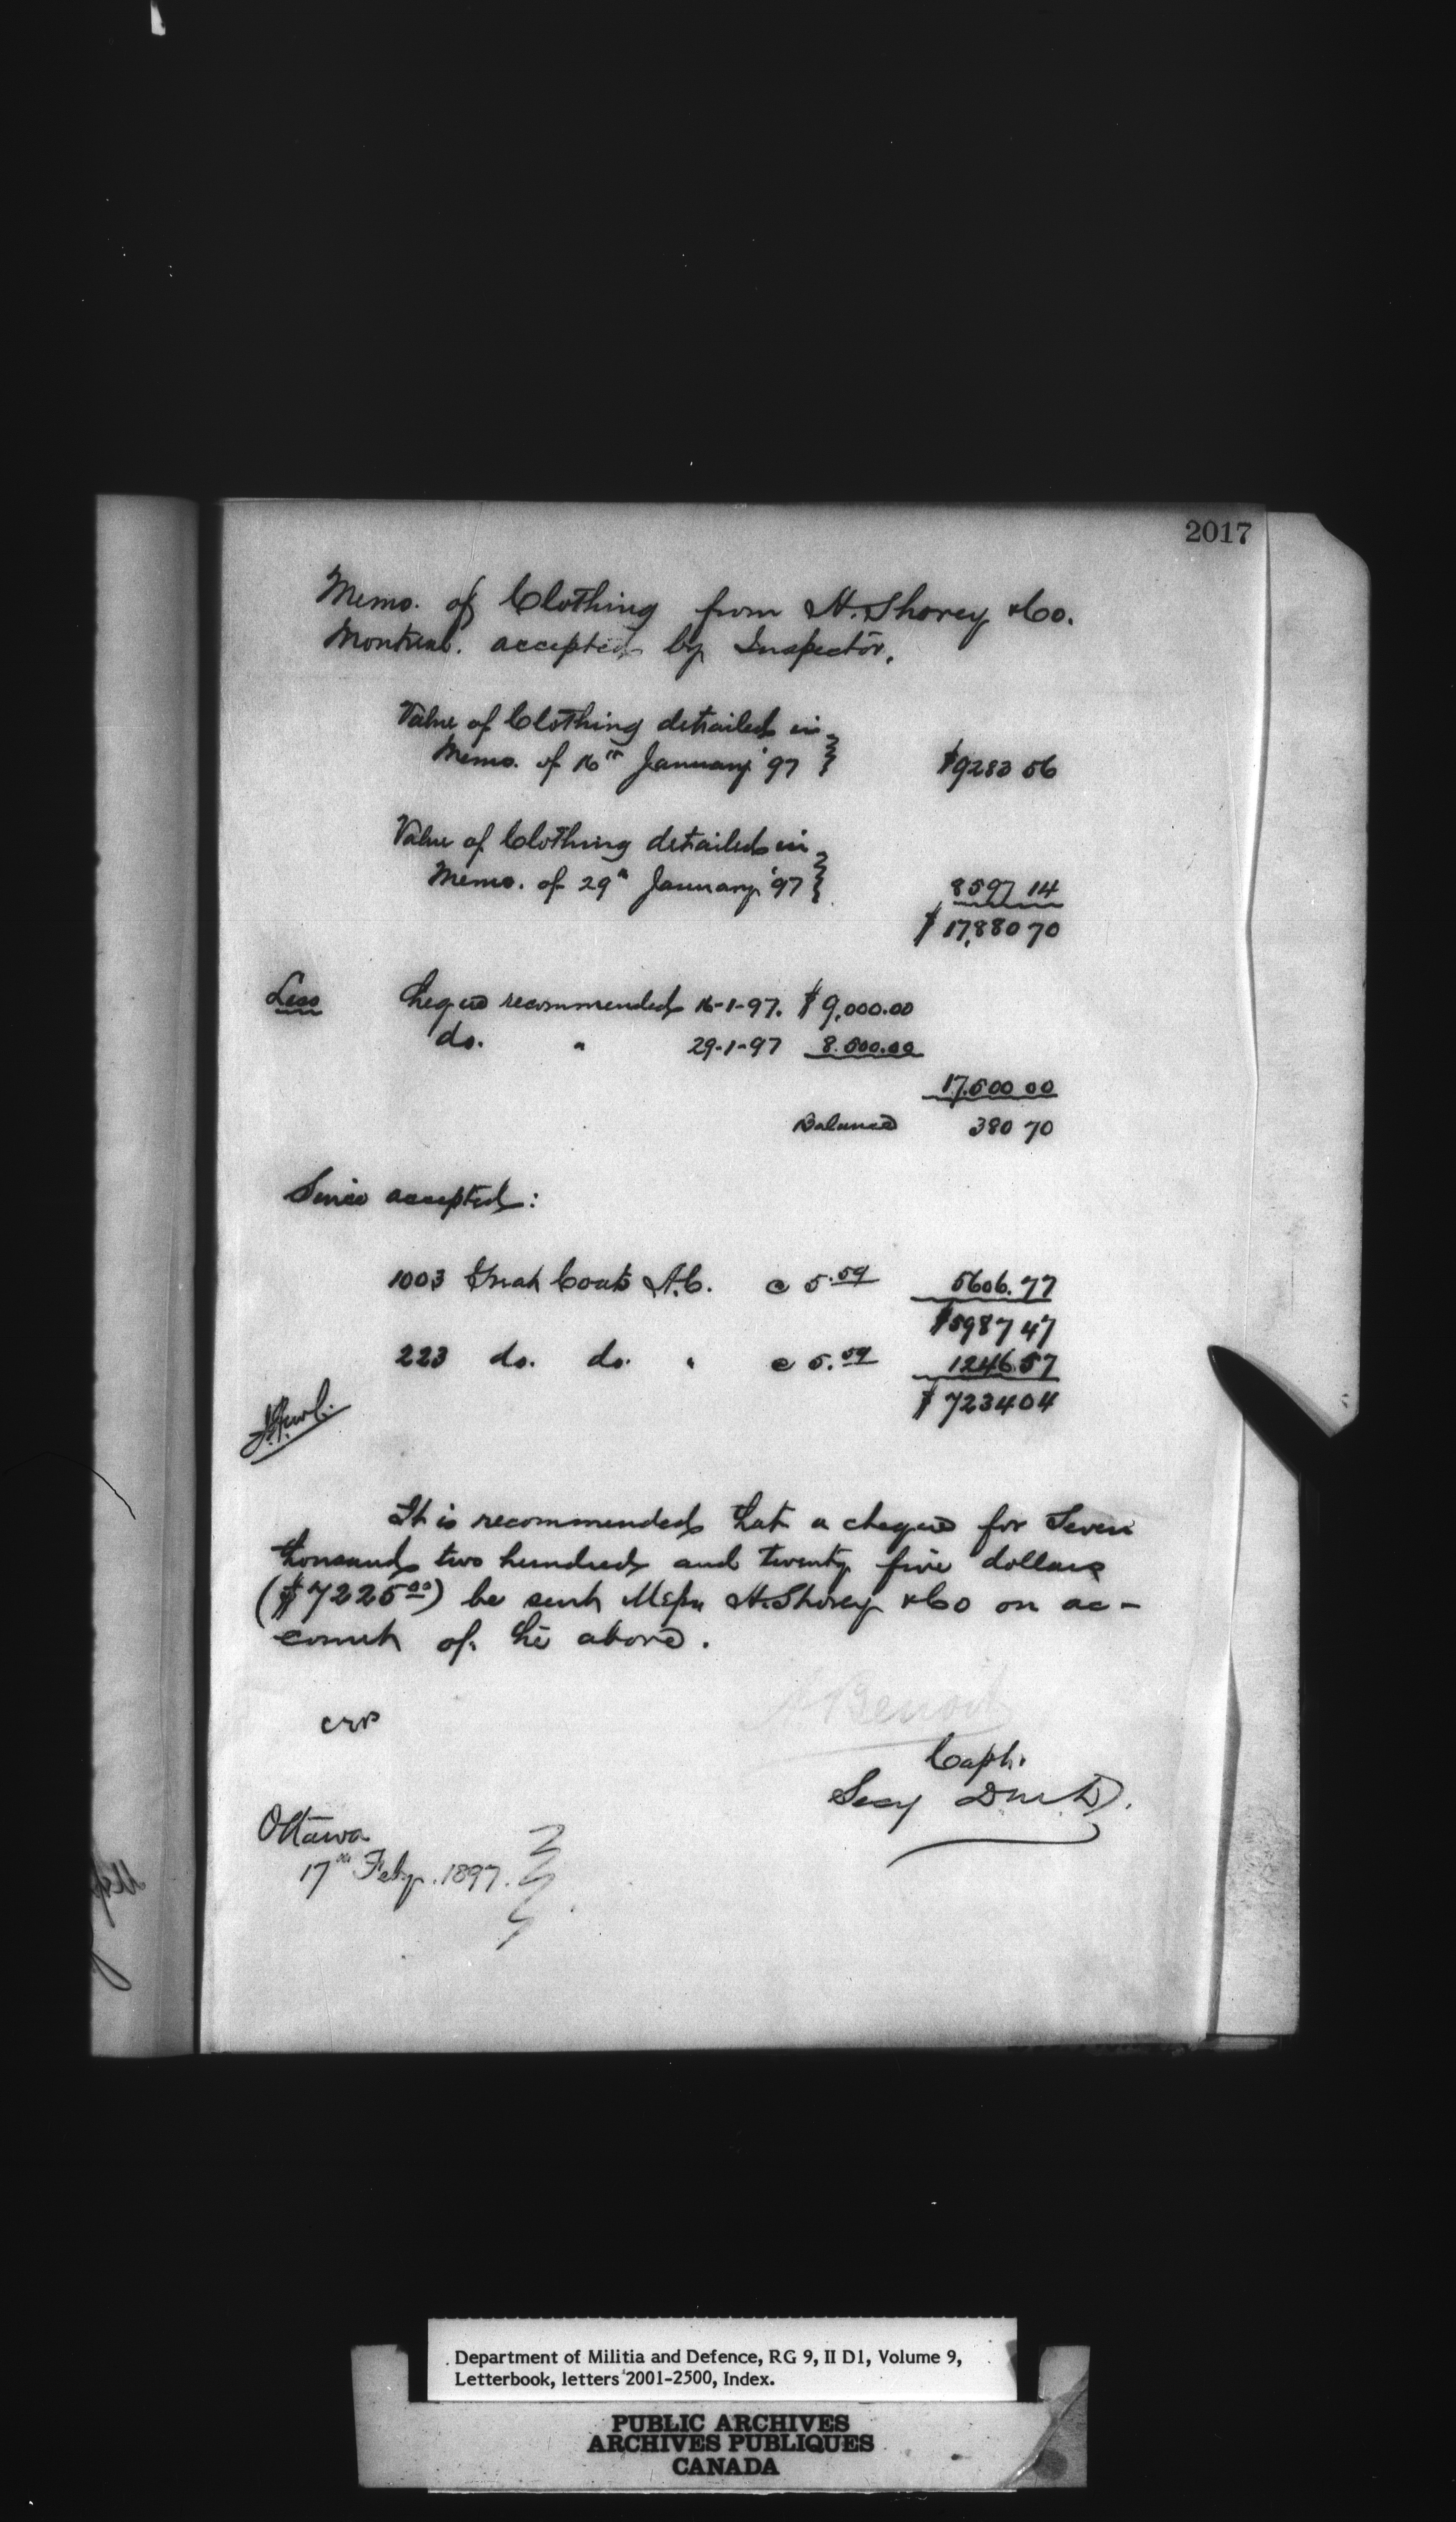 2017
Memo. of Clothing from H. Shorey & Co.
Montreal. accepted by Inspector.
Value of Clothing detailed in
Memo. of 16th January '97 } $9283 56
Value of Clothing detailed in
Memo. of 29th January '97 } 8597 14
$17,880 70
Less Cheque recommended 16-1-97. $9,000.00
do. " 29-1-97 8.500.00
17.500 00
Balance 380 70
Since accepted:
1003 Great Coats A.C. @ 5.59 5606.77
$5987 47
223 do. do. " @ 5.59 1246.57
$7234 04
It is recommended that a cheque for Seven
thousand two hundred and twenty five dollars
($7225 00) be sent Messrs H. Shorey & Co on ac-
count of the above.
Benoit
Capt.
Secy D M & D.
Ottawa
17th Feby. 1897.
Department of Militia and Defence, RG 9, II D1, Volume 9,
Letterbook, letters 2001-2500, Index.
PUBLIC ARCHIVES
ARCHIVES PUBLIQUES
CANADA